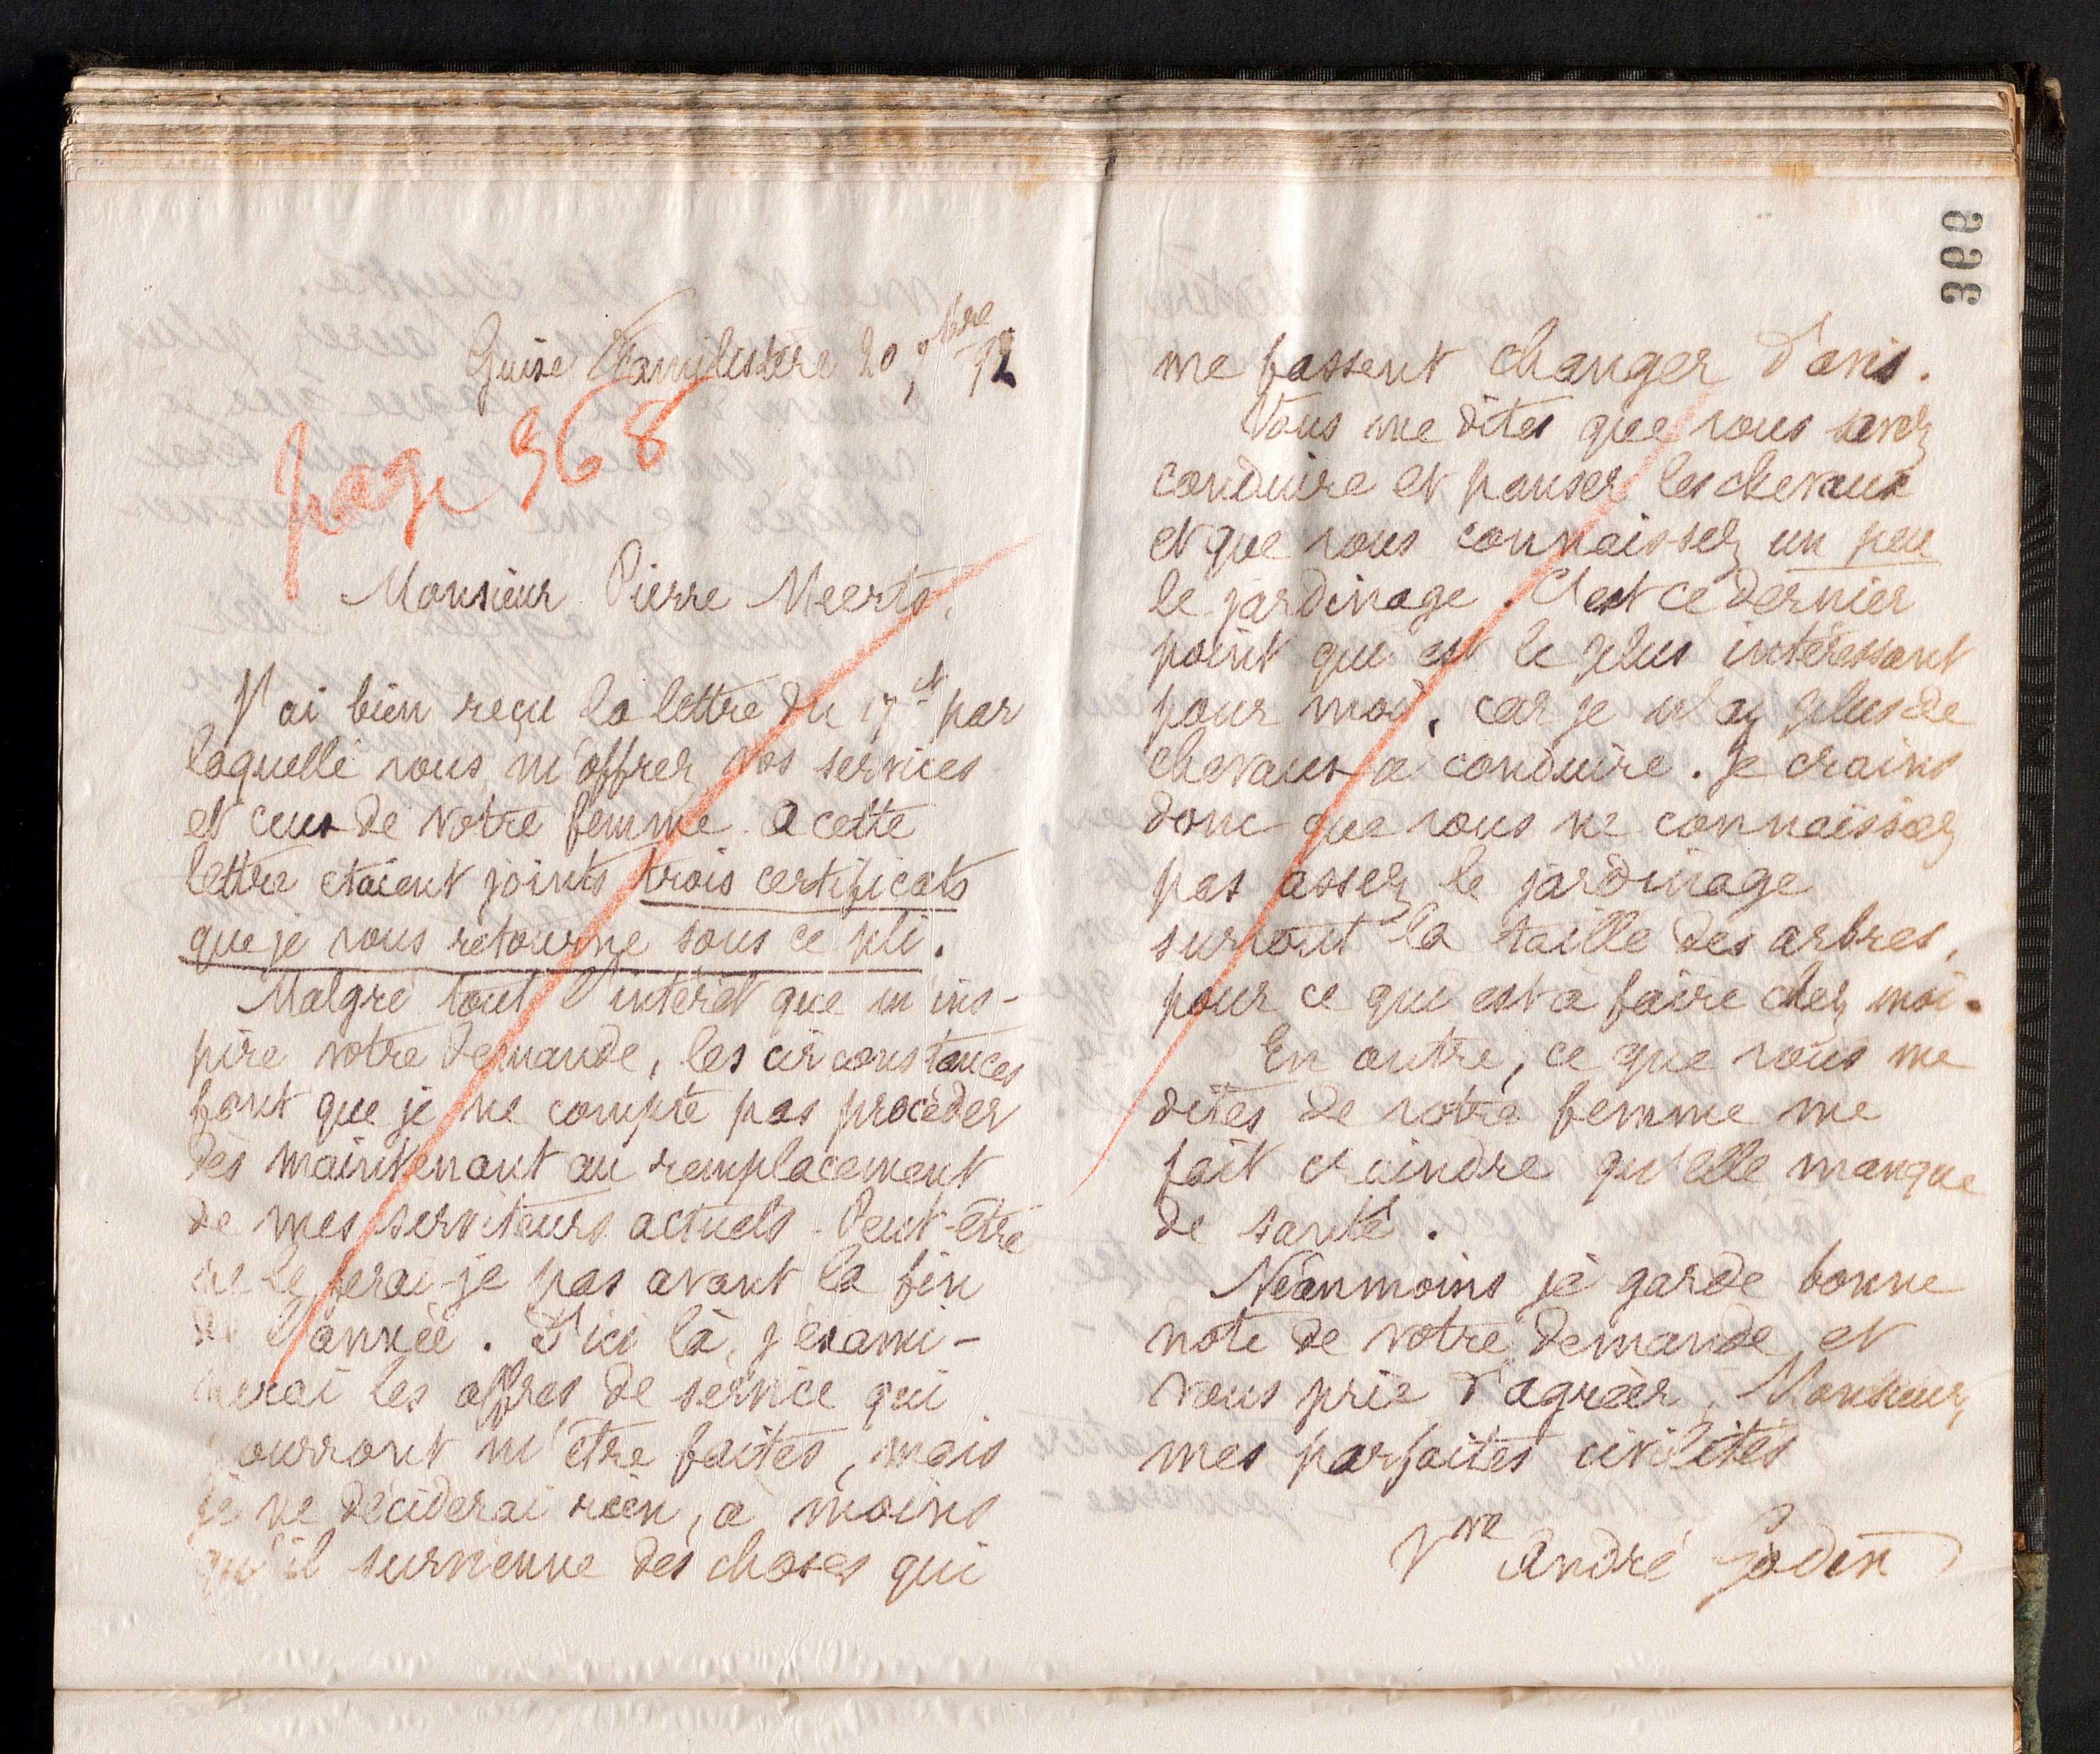 366
Guise Familistère 20 9bre 92
page 368
Monsieur Pierre Meerts,
J'ai bien reçu la lettre du 17 ct par
laquelle vous m'offrez vos services
et ceux de votre femme. A cette
lettre étaient joints trois certificats
que je vous retourne sous ce pli.
Malgré tout l'intérêt que m'ins-
pire votre demande, les circonstances
font que je ne compte pas procéder
dès maintenant au remplacement
de mes serviteurs actuels. Peut-être
ne le ferai-je pas avant la fin
de l'année. D'ici là, j'exami-
nerai les offres de service qui
pourront m'être faites, mais
je ne déciderai rien, à moins
qu'il survienne des choses qui
me fassent changer d'avis.
Vous me dites que vous savez
conduire et panser les chevaux
et que vous connaissez un peu
le jardinage. C'est ce dernier
point qui est le plus intéressant
pour moi, car je n'ay plus de
chevaux à conduire. Je crains
donc que vous ne connaissiez
pas assez le jardinage
surtout la taille des arbres,
pour ce qui est à faire chez moi.
En outre, ce que vous me
dites de votre femme me
fait craindre qu'elle manque
de santé.
Néanmoins je garde bonne
note de votre demande et
vous prie d'agréer, Monsieur,
mes parfaites civilités
Vve André Godin